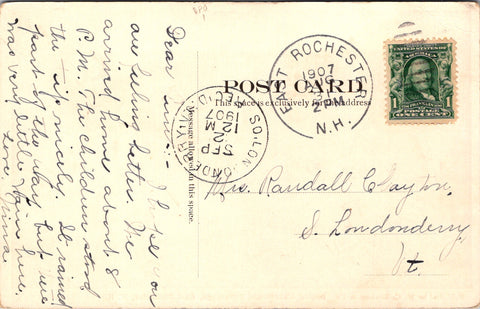 Dear
I hope you
are feeling better. We
arrived home about 8
P.M. The children stood
the trip nicely. It rained
part of the way but we
was very little rain here.
Love,
POST CARD
This space is exclusively for the address
Message allowed in this space.
EAST ROCHESTER
1907
N.H.
SO. LONDONDERRY
SEP
2
12 M
1907
1
ONE CENT
Mrs. Randall Clayton,
S. Londonderry
Vt.